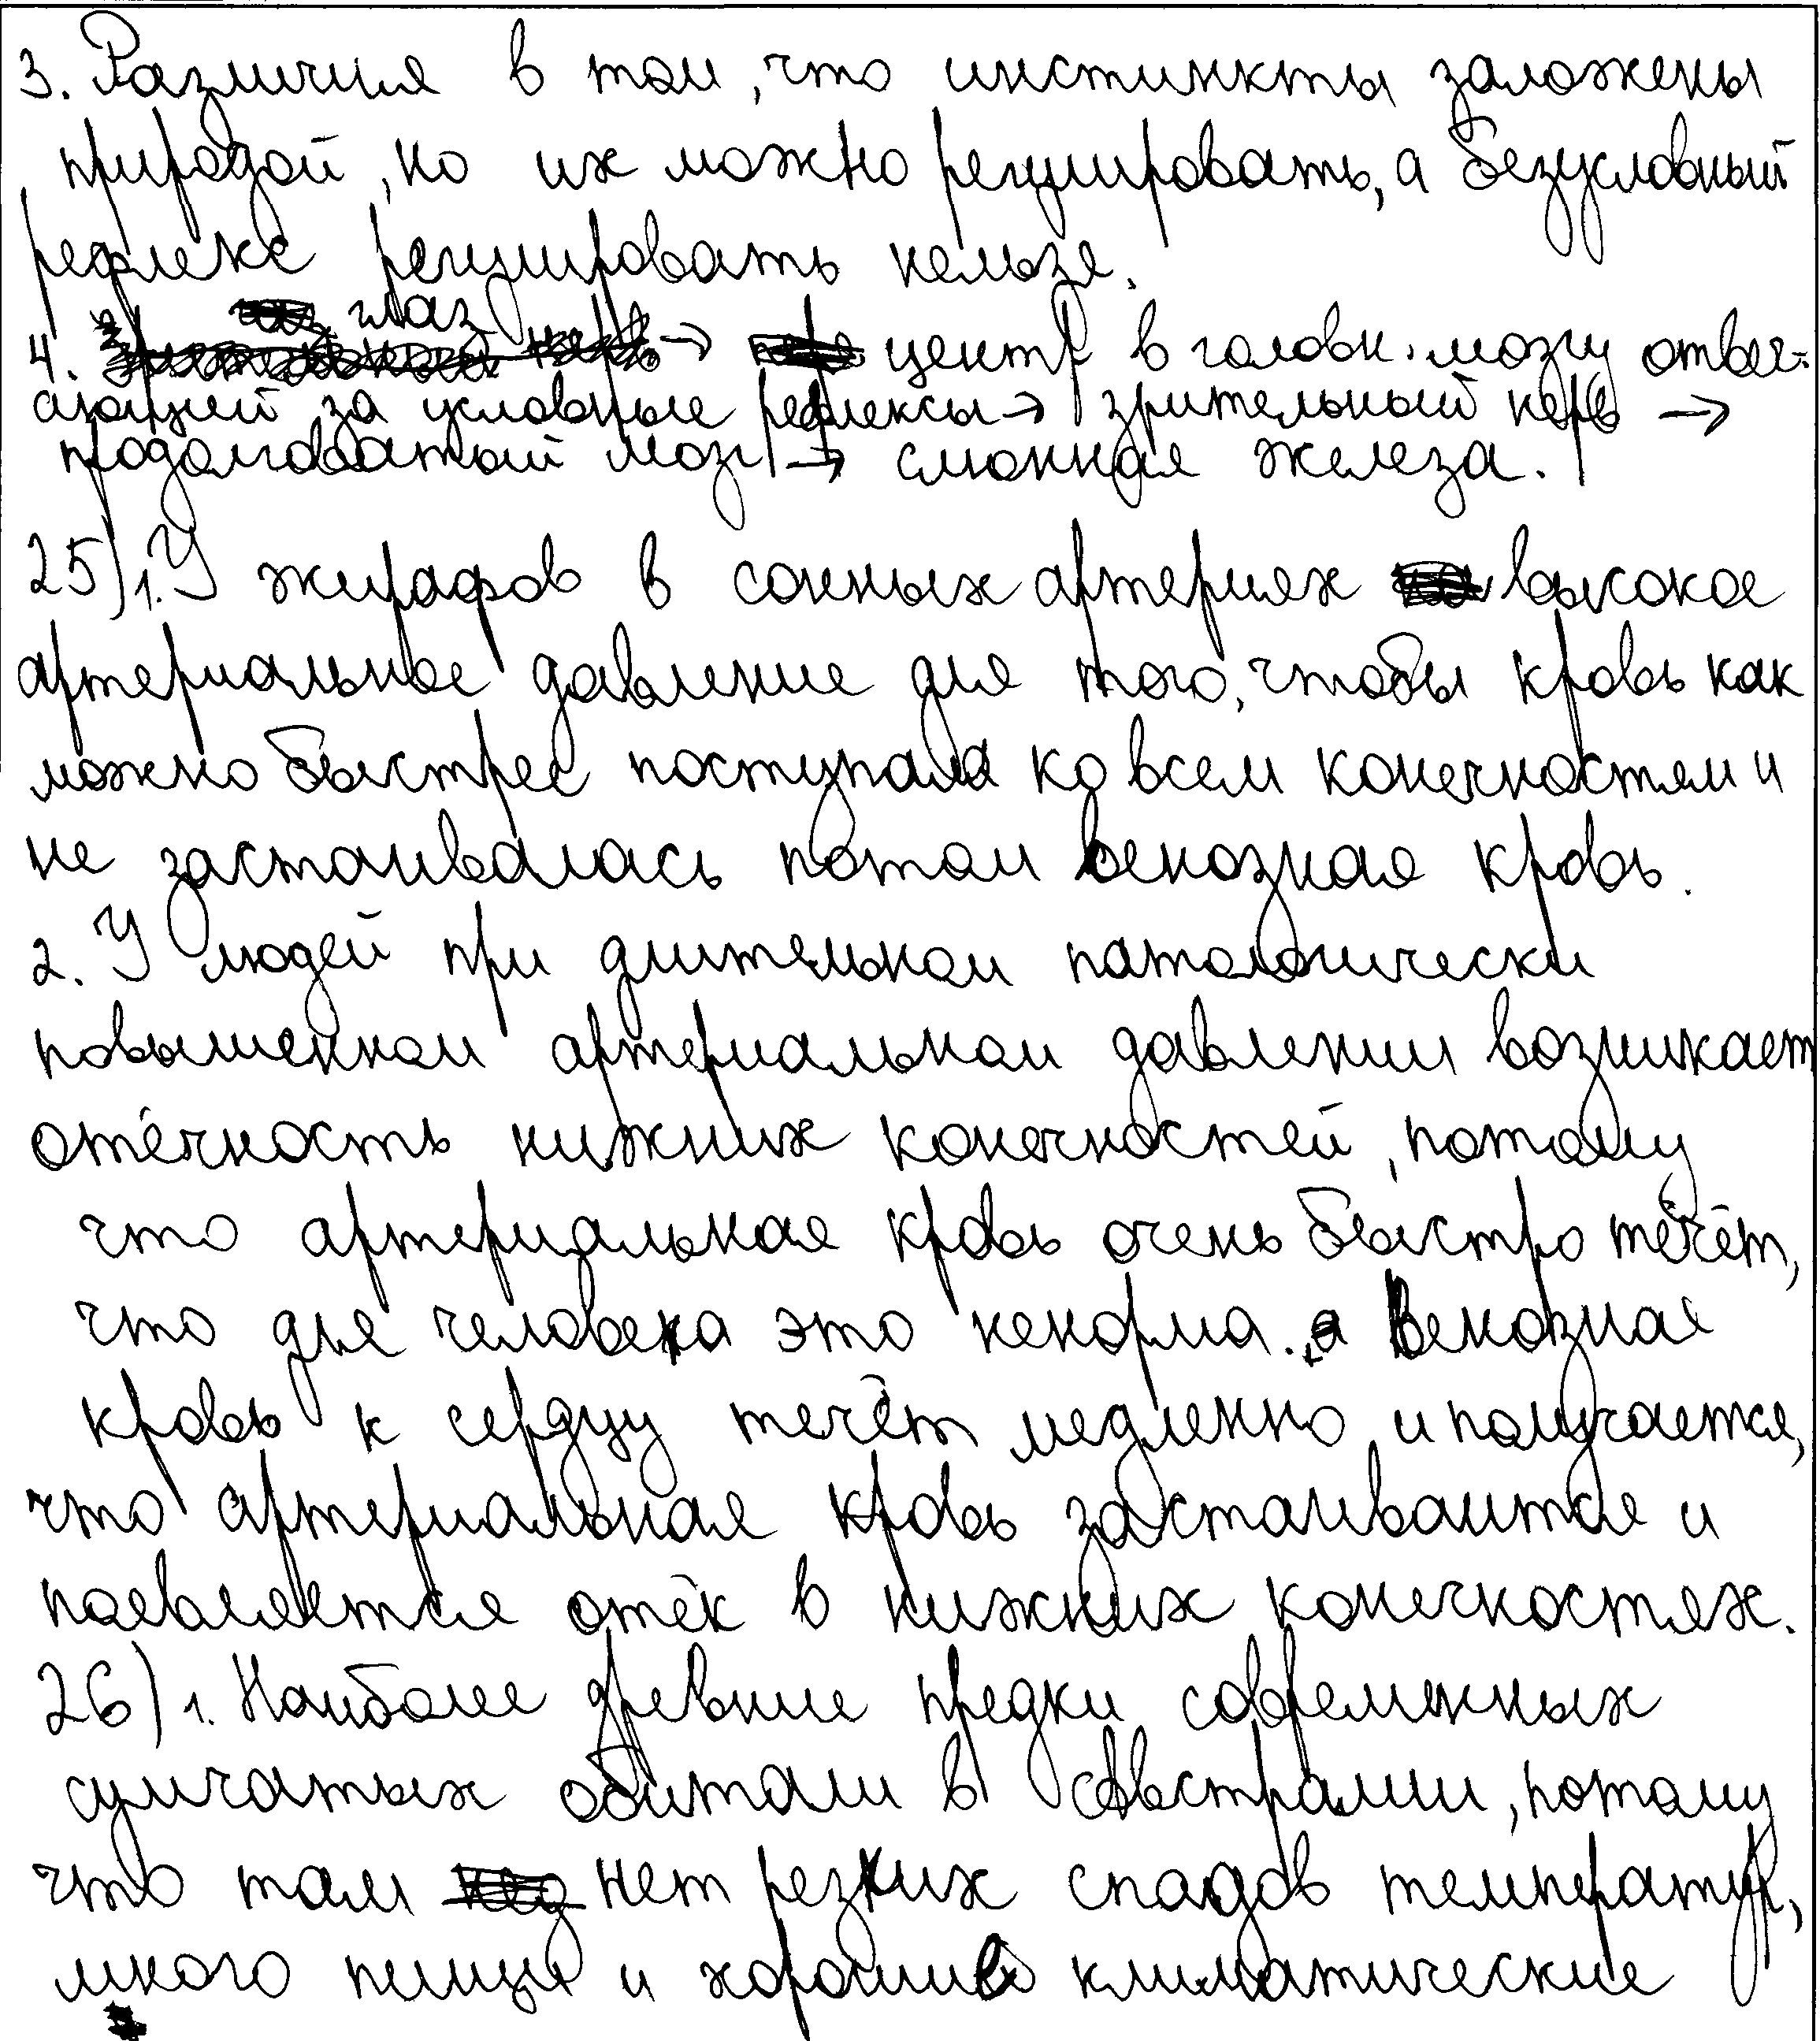 3. Различия в том, что инстинкты заложены
природой, но их можно регулировать, а безусловный
рефлекс регулировать нельзя.
глаз
4. → центр в головн. мозгу отвеч-
ающий за условные рефлексы → зрительный нерв →
продолговатый мозг → слюнная железа.
25) 1. У жирафов в сонных артериях высокое
артериальное давление для того, чтобы кровь как
можно быстрее поступала ко всем конечностям и
не застаивалась потом венозная кровь.
2. У людей при длительном патологически
повышенном артериальном давлении возникает
отёчность нижних конечностей, потому
что артериальная кровь очень быстро течёт,
что для человека это ненорма., а венозная
кровь к сердцу течёт медленно и получается,
что артериальная кровь застаиваится и
появляется отёк в нижних конечностях.
26) 1. Наиболее древние предки современных
сумчатых обитали в Австралии, потому
что там нет резких спадов температур,
много пищи и хорошие климатические